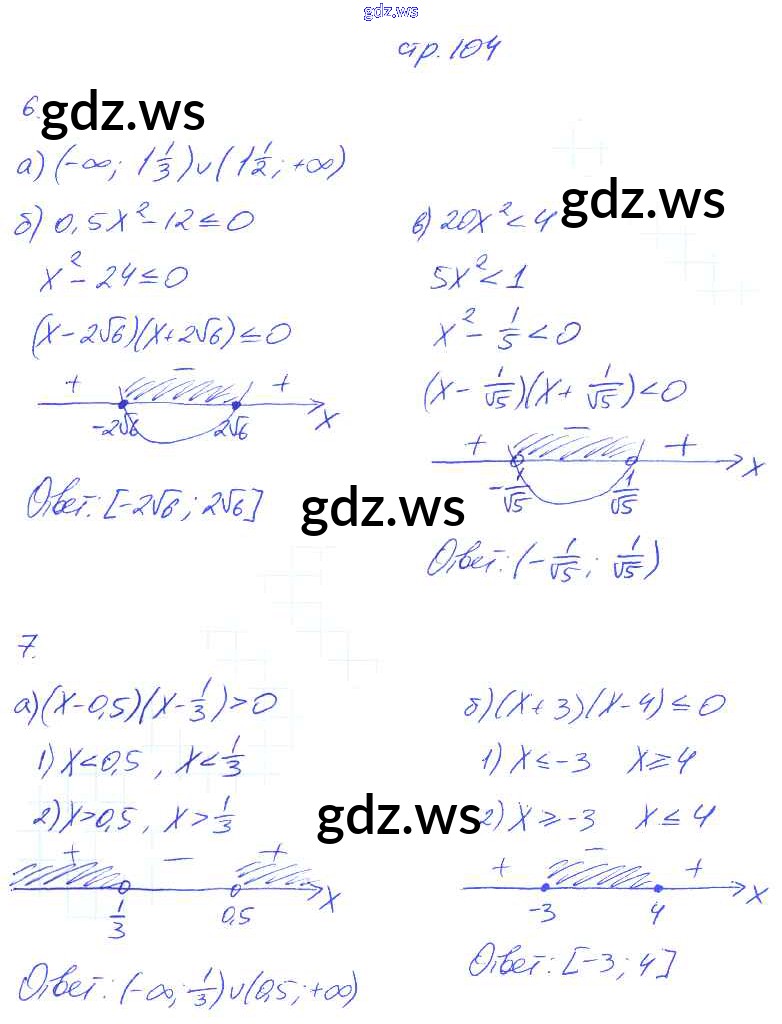 gdz.ws
стр. 104
6. gdz.ws
а) (-∞; 1 1/3) ∪ (1 1/2; +∞)
б) 0,5x² - 12 ≤ 0
x² - 24 ≤ 0
(x - 2√6)(x + 2√6) ≤ 0
+ - +
-2√6 2√6 x
Ответ: [-2√6; 2√6]
gdz.ws
в) 20x² < 4
5x² < 1
x² - 1/5 < 0
(x - 1/√5)(x + 1/√5) < 0
+ - +
-1/√5 1/√5 x
gdz.ws
Ответ: (-1/√5; 1/√5)
7.
а) (x - 0,5)(x - 1/3) > 0
1) x < 0,5, x < 1/3
2) x > 0,5, x > 1/3
+ - +
1/3 0,5 x
Ответ: (-∞; 1/3) ∪ (0,5; +∞)
б) (x + 3)(x - 4) ≤ 0
1) x ≤ -3 x ≥ 4
gdz.ws
2) x ≥ -3 x ≤ 4
+ - +
-3 4 x
Ответ: [-3; 4]